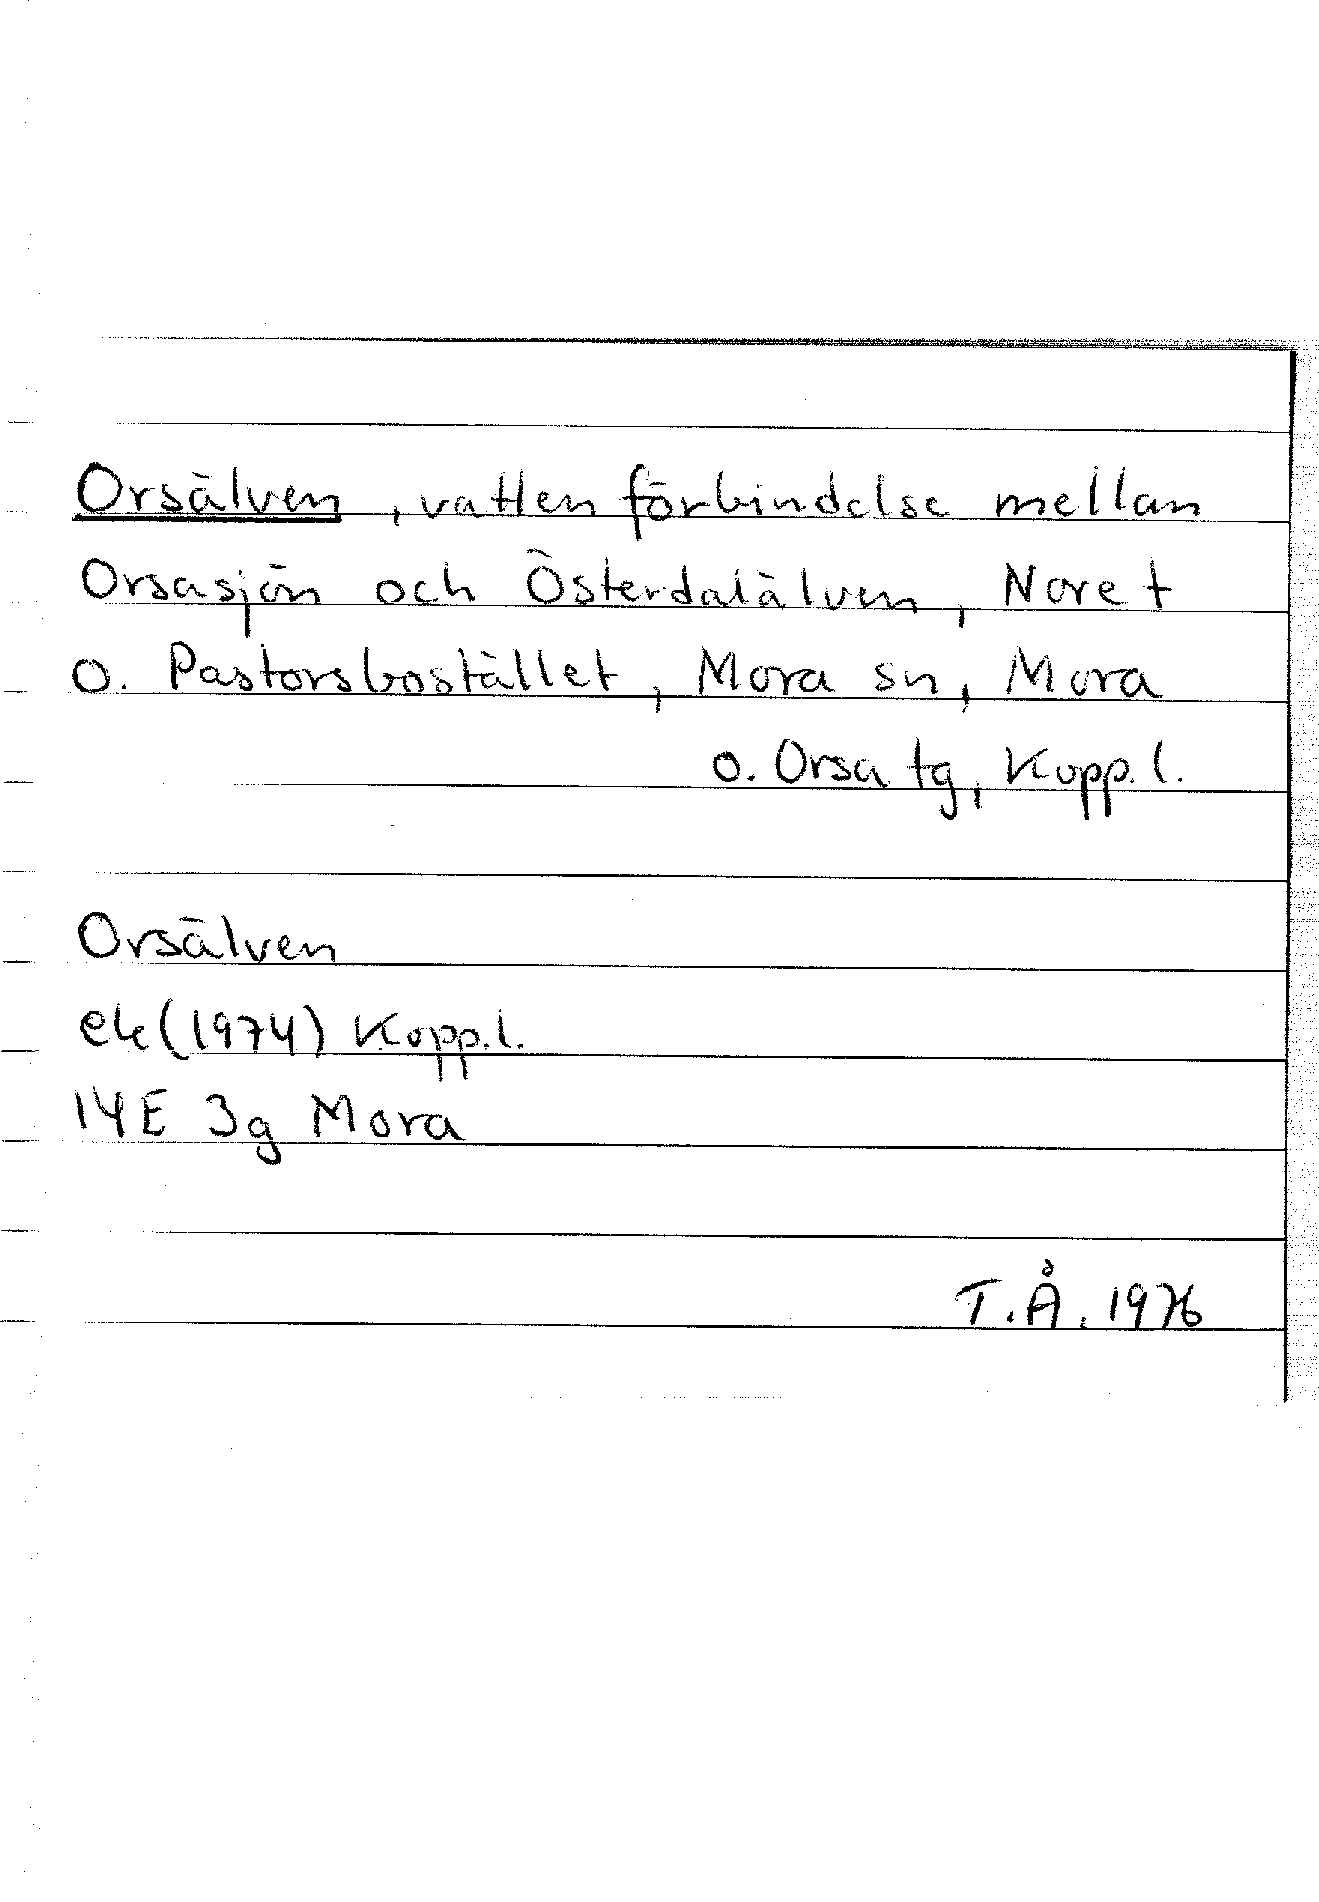 Orsälven, vattenförbindelse mellan
Orsasjön och Österdalälven, Noret
o. Pastorsbostället, Mora sn, Mora
o. Orsa tg, Kopp. l.
Orsälven
ek (1974) Kopp. l.
14E 3g Mora
T.Å. 1976